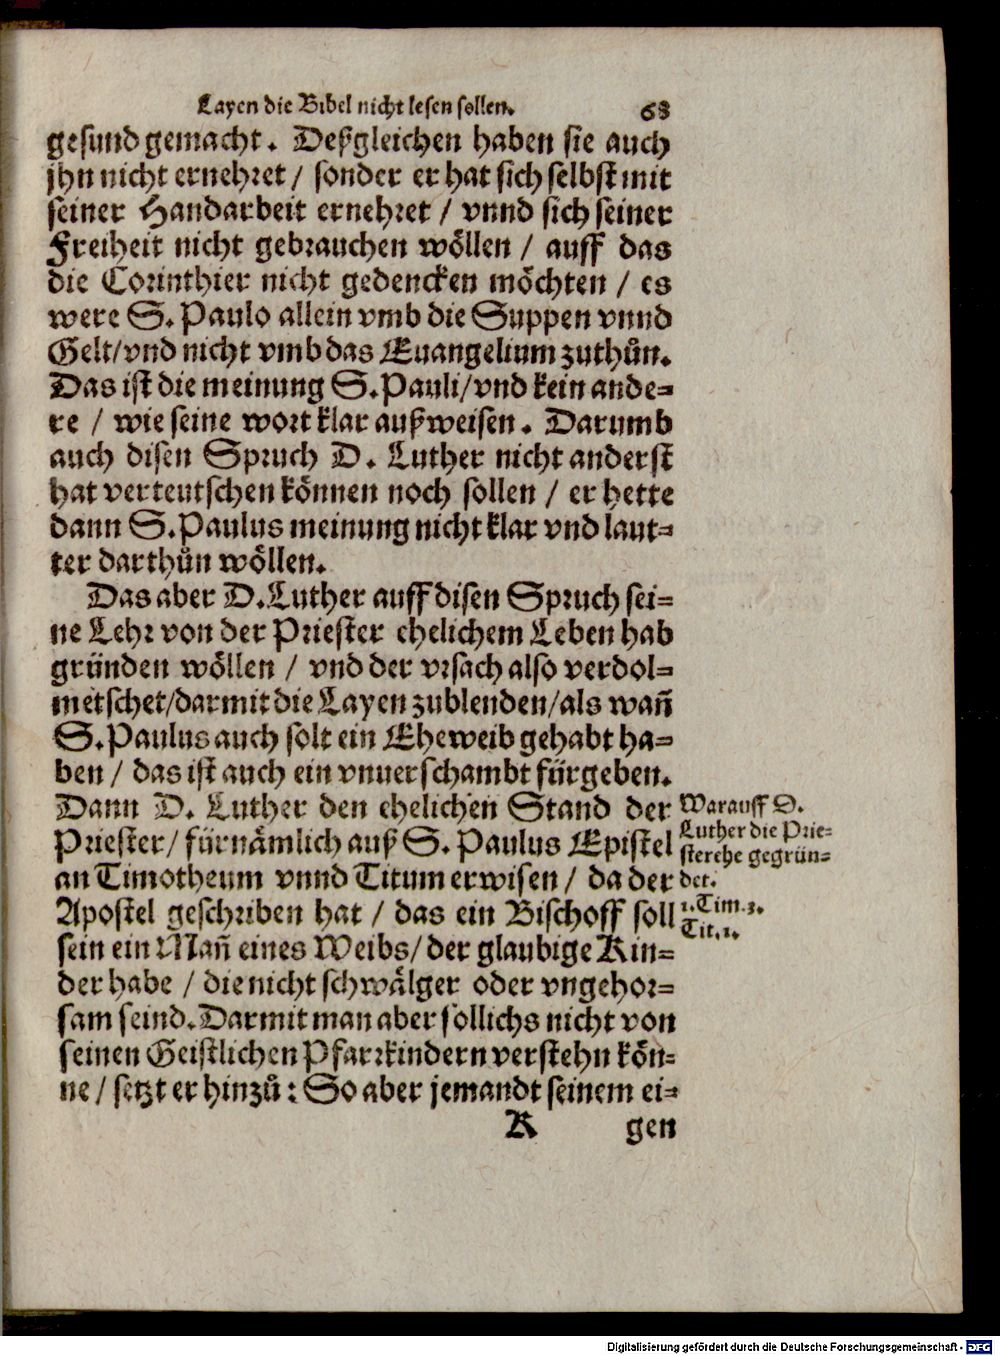 Layen die Bibel nicht lesen sollen. 68
gesund gemacht. Deßgleichen haben sie auch
jhn nicht ernehret / sonder er hat sich selbst mit
seiner Handarbeit ernehret / vnnd sich seiner
Freiheit nicht gebrauchen wöllen / auff das
die Corinthier nicht gedencken möchten / es
were S. Paulo allein vmb die Suppen vnnd
Gelt/vnd nicht vmb das Euangelium zuthůn.
Das ist die meinung S. Pauli/vnd kein ande-
re / wie seine wort klar außweisen. Darumb
auch disen Spruch D. Luther nicht anderst
hat verteutschen können noch sollen / er hette
dann S. Paulus meinung nicht klar vnd laut-
ter darthůn wöllen.
Das aber D. Luther auff disen Spruch sei-
ne Lehr von der Priester ehelichem Leben hab
gründen wöllen / vnd der vrsach also verdol-
metschet/darmit die Layen zublenden/als wañ
S. Paulus auch solt ein Eheweib gehabt ha-
ben / das ist auch ein vnuerschambt fürgeben.
Dann D. Luther den ehelichen Stand der
Priester/ fürnämlich auß S. Paulus Epistel
an Timotheum vnnd Titum erwisen / da der
Apostel geschriben hat / das ein Bischoff soll
sein ein Mañ eines Weibs/ der glaubige Kin-
der habe / die nicht schwälger oder vngehor-
sam seind. Darmit man aber sollichs nicht von
seinen Geistlichen Pfarrkindern verstehn kön-
ne / setzt er hinzů: So aber jemandt seinem ei-
K gen
Warauff D.
Luther die Prie-
sterehe gegrün-
det.
1. Tim. 3.
Tit. 1.
Digitalisierung gefördert durch die Deutsche Forschungsgemeinschaft - DFG